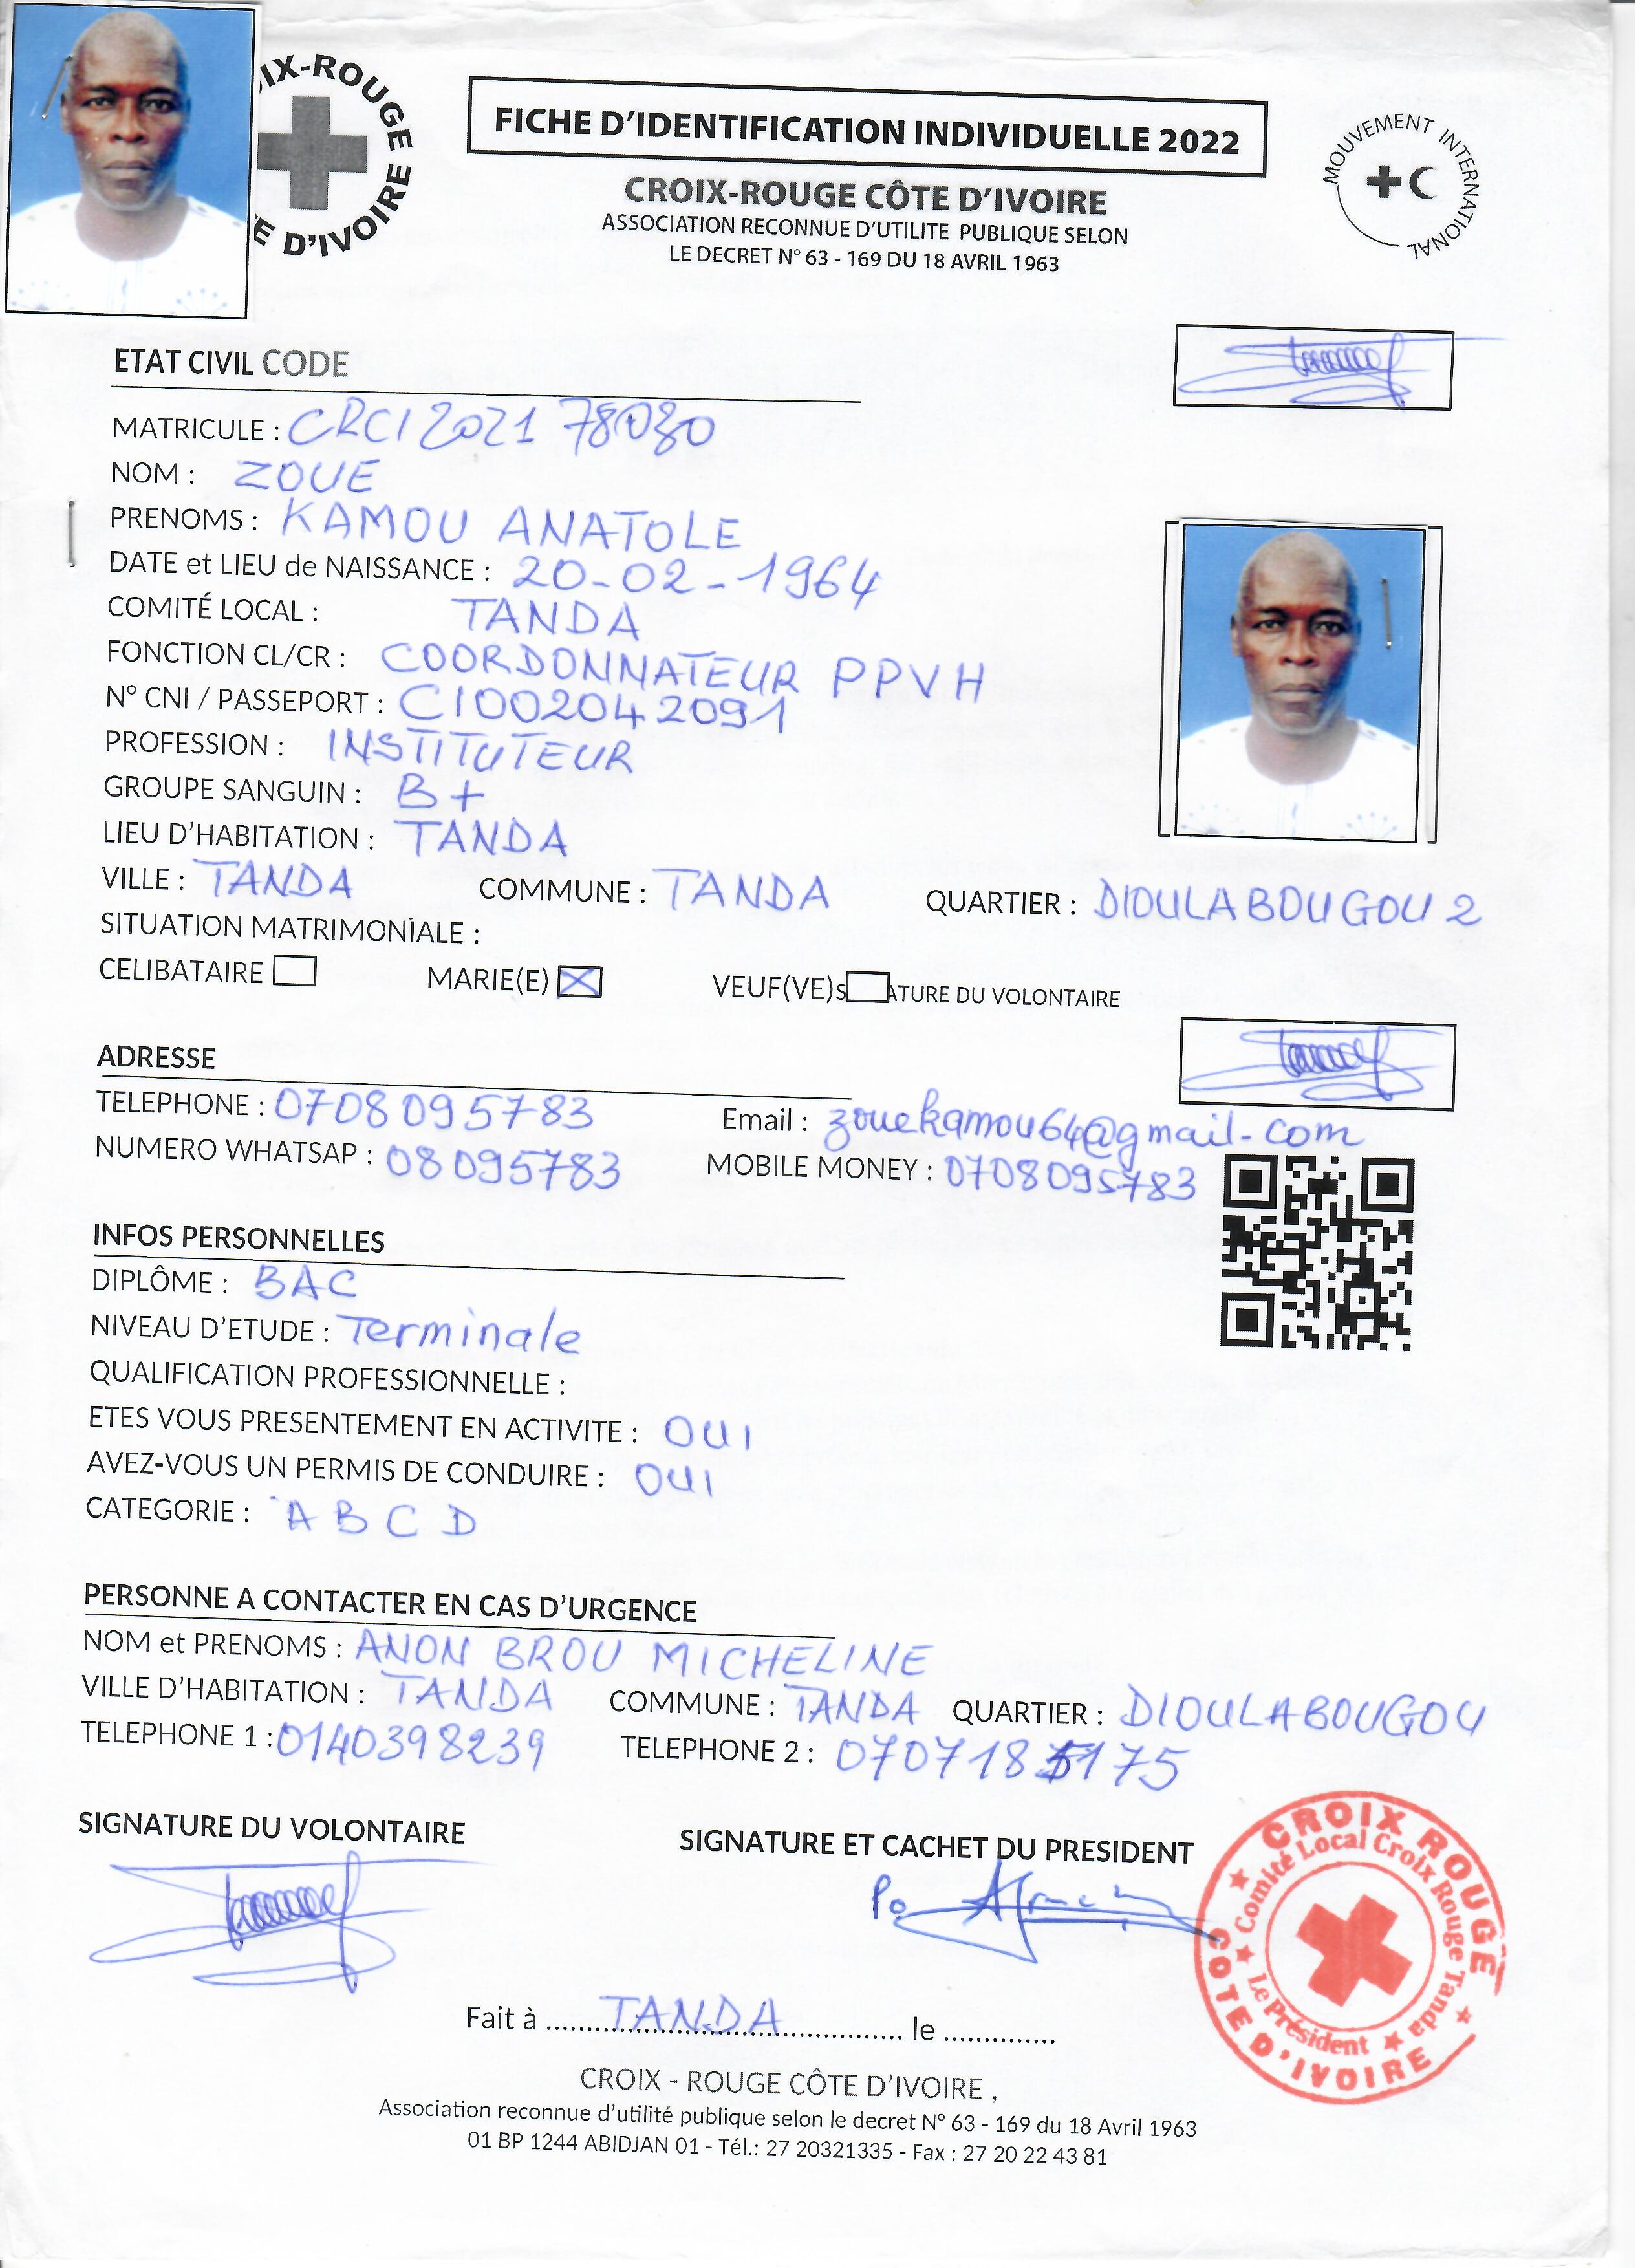 IX-ROUGE
E D'IVOIRE
FICHE D'IDENTIFICATION INDIVIDUELLE 2022
CROIX-ROUGE CÔTE D'IVOIRE
ASSOCIATION RECONNUE D'UTILITE PUBLIQUE SELON
LE DECRET N° 63 - 169 DU 18 AVRIL 1963
MOUVEMENT INTERNATIONAL
ETAT CIVIL CODE
MATRICULE : CRCI 2021 78080
NOM : ZOUE
PRENOMS : KAMOU ANATOLE
DATE et LIEU de NAISSANCE : 20-02-1964
COMITÉ LOCAL : TANDA
FONCTION CL/CR : COORDONNATEUR PPVH
N° CNI / PASSEPORT : CI002042091
PROFESSION : INSTITUTEUR
GROUPE SANGUIN : B+
LIEU D'HABITATION : TANDA
VILLE : TANDA COMMUNE : TANDA QUARTIER : DIOULABOUGOU 2
SITUATION MATRIMONIALE :
CELIBATAIRE MARIE(E) VEUF(VE) S ATURE DU VOLONTAIRE
ADRESSE
TELEPHONE : 0708095783 Email : zouekamou64@gmail-com
NUMERO WHATSAP : 08095783 MOBILE MONEY : 0708095783
INFOS PERSONNELLES
DIPLÔME : BAC
NIVEAU D'ETUDE : Terminale
QUALIFICATION PROFESSIONNELLE :
ETES VOUS PRESENTEMENT EN ACTIVITE : OUI
AVEZ-VOUS UN PERMIS DE CONDUIRE : OUI
CATEGORIE : A B C D
PERSONNE A CONTACTER EN CAS D'URGENCE
NOM et PRENOMS : ANON BROU MICHELINE
VILLE D'HABITATION : TANDA COMMUNE : TANDA QUARTIER : DIOULABOUGOU
TELEPHONE 1 : 0140398239 TELEPHONE 2 :
SIGNATURE DU VOLONTAIRE SIGNATURE ET CACHET DU PRESIDENT
Po
CROIX ROUGE
COTE D'IVOIRE
Comité Local Croix Rouge Tanda
Le Président
Fait à ..........TANDA.......... le ..............
CROIX - ROUGE CÔTE D'IVOIRE ,
Association reconnue d'utilité publique selon le decret N° 63 - 169 du 18 Avril 1963
01 BP 1244 ABIDJAN 01 - Tél.: 27 20321335 - Fax : 27 20 22 43 81